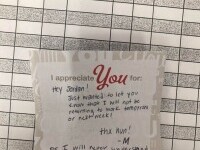 I appreciate You for:
Hey Jordan!
Just wanted to let you
know that I will not be
returning to work tomorrow
or next week!
thx hun!
-M
PS I will never understand